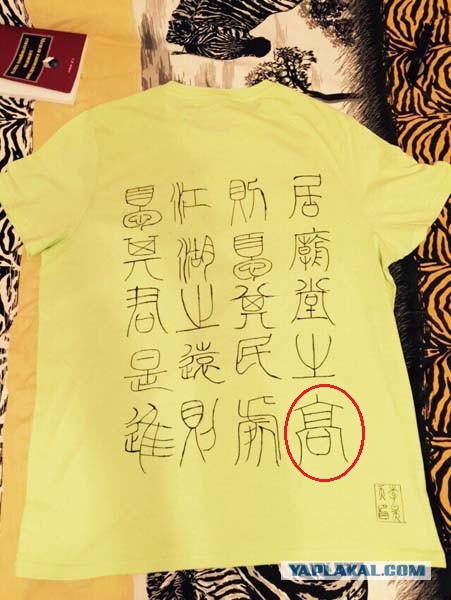 居廟堂之高
則憂其民處
江湖之遠則
憂其君是進
YAPLAKAL.COM